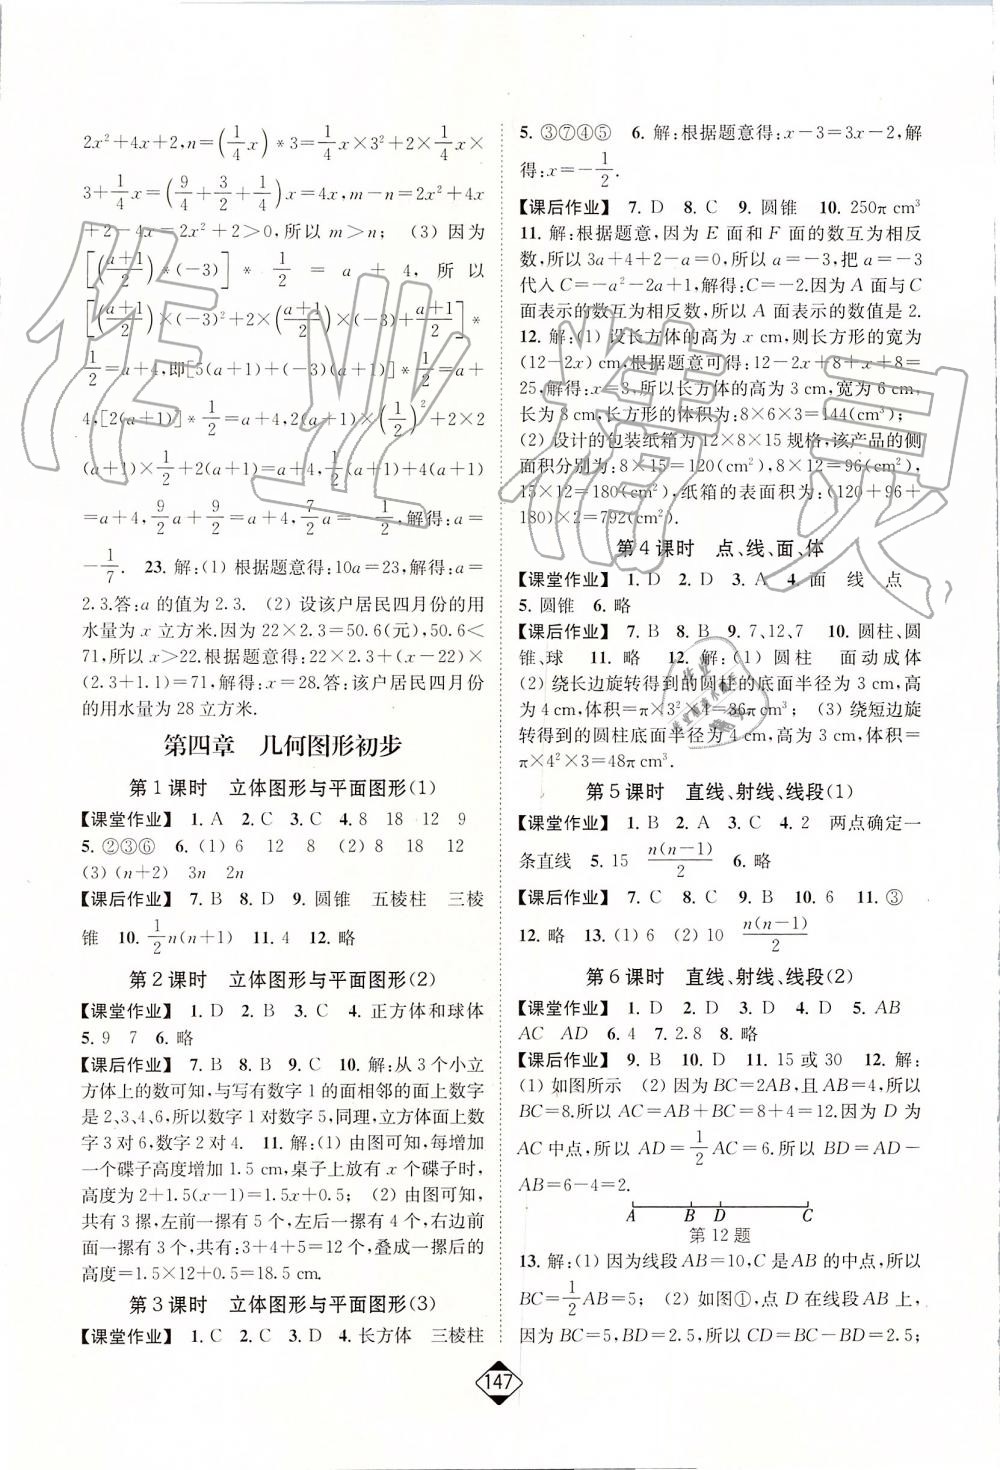 2x²+4x+2,n=(1/4 x)*3=1/4 x×3²+2×1/4 x×
3+1/4 x=(9/4+3/2+1/4)x=4x,m-n=2x²+4x
+2-4x=2x²+2>0,所以 m>n; (3) 因为
[(a+1)/2 *(-3)]*1/2 = a+4, 所以
[(a+1)/2×(-3)²+2×(a+1)/2×(-3)+(a+1)/2]*
1/2=a+4,即[5(a+1)+(-3)(a+1)]*1/2=a+
4,[2(a+1)]*1/2=a+4,2(a+1)×(1/2)²+2×2
(a+1)×1/2+2(a+1)=a+4,1/2(a+1)+4(a+1)
=a+4,9/2 a+9/2=a+4,7/2 a=-1/2,解得:a=
-1/7. 23. 解:(1) 根据题意得:10a=23,解得:a=
2.3.答:a 的值为 2.3. (2) 设该户居民四月份的用
水量为 x 立方米.因为 22×2.3=50.6(元),50.6<
71,所以 x>22.根据题意得:22×2.3+(x-22)×
(2.3+1.1)=71,解得:x=28.答:该户居民四月份
的用水量为 28 立方米.
第四章 几何图形初步
第 1 课时 立体图形与平面图形(1)
【课堂作业】 1. A 2. C 3. C 4. 8 18 12 9
5. ②③⑥ 6. (1) 6 12 8 (2) 8 18 12
(3) (n+2) 3n 2n
【课后作业】 7. B 8. D 9. 圆锥 五棱柱 三棱
锥 10. 1/2 n(n+1) 11. 4 12. 略
第 2 课时 立体图形与平面图形(2)
【课堂作业】 1. D 2. B 3. C 4. 正方体和球体
5. 9 7 6. 略
【课后作业】 7. B 8. B 9. C 10. 解:从 3 个小立
方体上的数可知,与写有数字 1 的面相邻的面上数字
是 2、3、4、6,所以数字 1 对数字 5,同理,立方体面上数
字 3 对 6,数字 2 对 4. 11. 解:(1) 由图可知,每增加
一个碟子高度增加 1.5 cm,桌子上放有 x 个碟子时,
高度为 2+1.5(x-1)=1.5x+0.5; (2) 由图可知,
共有 3 摞,左前一摞有 5 个,左后一摞有 4 个,右边前
面一摞有 3 个,共有:3+4+5=12 个,叠成一摞后的
高度=1.5×12+0.5=18.5 cm.
第 3 课时 立体图形与平面图形(3)
【课堂作业】 1. C 2. C 3. D 4. 长方体 三棱柱
5. ③⑦④⑤ 6. 解:根据题意得:x-3=3x-2,解
得:x=-1/2.
【课后作业】 7. D 8. C 9. 圆锥 10. 250π cm³
11. 解:根据题意,因为 E 面和 F 面的数互为相反
数,所以 3a+4+2-a=0,所以 a=-3,把 a=-3
代入 C=-a²-2a+1,解得:C=-2.因为 A 面与 C
面表示的数互为相反数,所以 A 面表示的数值是 2.
12. 解:(1) 设长方体的高为 x cm,则长方形的宽为
(12-2x) cm,根据题意可得:12-2x+8+x+8=
25,解得:x=3,所以长方体的高为 3 cm,宽为 6 cm,
长为 8 cm,长方形的体积为:8×6×3=144(cm³);
(2) 设计的包装纸箱为 12×8×15 规格,该产品的侧
面积分别为:8×15=120(cm²),8×12=96(cm²),
15×12=180(cm²),纸箱的表面积为:(120+96+
180)×2=792(cm²).
第 4 课时 点、线、面、体
【课堂作业】 1. D 2. D 3. A 4. 面 线 点
5. 圆锥 6. 略
【课后作业】 7. B 8. B 9. 7、12、7 10. 圆柱、圆
锥、球 11. 略 12. 解:(1) 圆柱 面动成体
(2) 绕长边旋转得到的圆柱的底面半径为 3 cm,高为
4 cm,体积=π×3²×4=36π(cm³); (3) 绕短边旋
转得到的圆柱底面半径为 4 cm,高为 3 cm,体积=
π×4²×3=48π cm³.
第 5 课时 直线、射线、线段(1)
【课堂作业】 1. B 2. A 3. C 4. 2 两点确定一
条直线 5. 15 n(n-1)/2 6. 略
【课后作业】 7. C 8. C 9. B 10. 6 11. ③
12. 略 13. (1) 6 (2) 10 n(n-1)/2
第 6 课时 直线、射线、线段(2)
【课堂作业】 1. D 2. D 3. D 4. D 5. AB
AC AD 6. 4 7. 2.8 8. 略
【课后作业】 9. B 10. D 11. 15 或 30 12. 解:
(1) 如图所示 (2) 因为 BC=2AB,且 AB=4,所以
BC=8.所以 AC=AB+BC=8+4=12.因为 D 为
AC 中点,所以 AD=1/2 AC=6.所以 BD=AD-
AB=6-4=2.
A B D C
第 12 题
13. 解:(1) 因为线段 AB=10,C 是 AB 的中点,所以
BC=1/2 AB=5; (2) 如图①,点 D 在线段 AB 上,
因为 BC=5,BD=2.5,所以 CD=BC-BD=2.5;
147
作业精灵